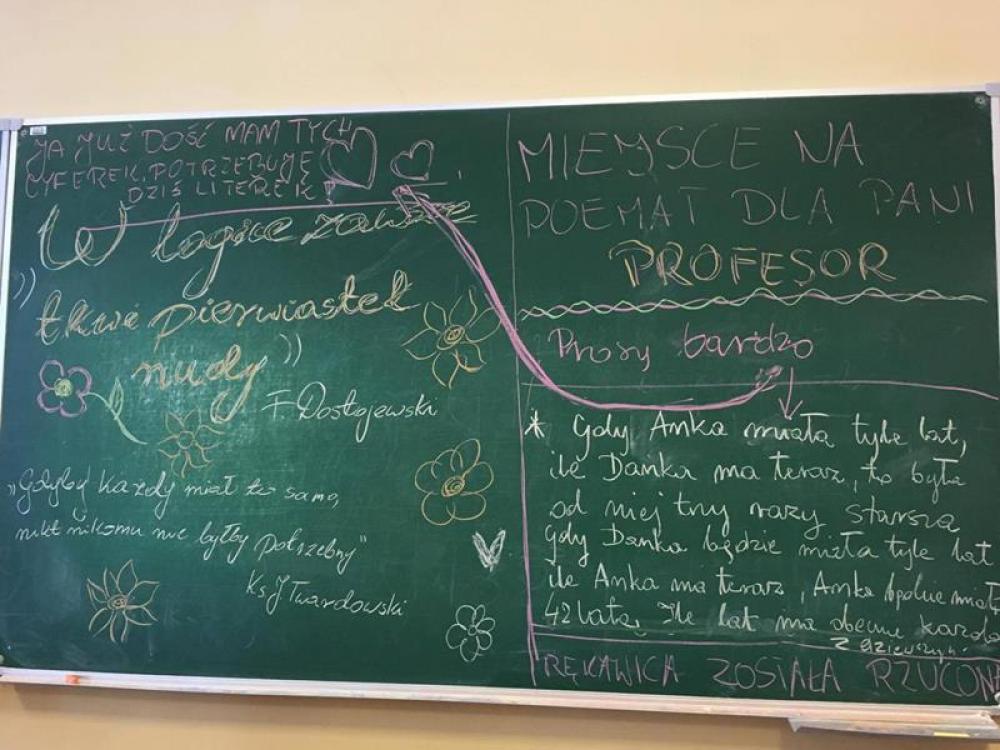 JA JUŻ DOŚĆ MAM TYCH
CYFEREK, POTRZEBUJĘ
DZIŚ LITEREK!
W logice zawsze
tkwi pierwiastek
nudy"
F Dostojewski
„Gdyby każdy miał to samo,
nikt nikomu nie byłby potrzebny"
Ks J Twardowski
MIEJSCE NA
POEMAT DLA PANI
PROFESOR
Proszę bardzo
* Gdy Anka miała tyle lat,
ile Danka ma teraz, to była
od niej trzy razy starsza
Gdy Danka będzie miała tyle lat
ile Anka ma teraz, Anka będzie miała
42 lata. Ile lat ma obecnie każda
z dziewczyn.
RĘKAWICA ZOSTAŁA RZUCONA